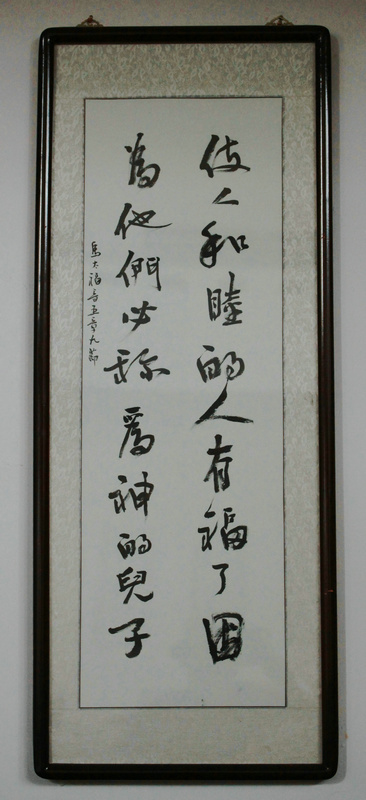 使人和睦的人有福了因
為他們必称爲神的兒子
馬太福音五章九節